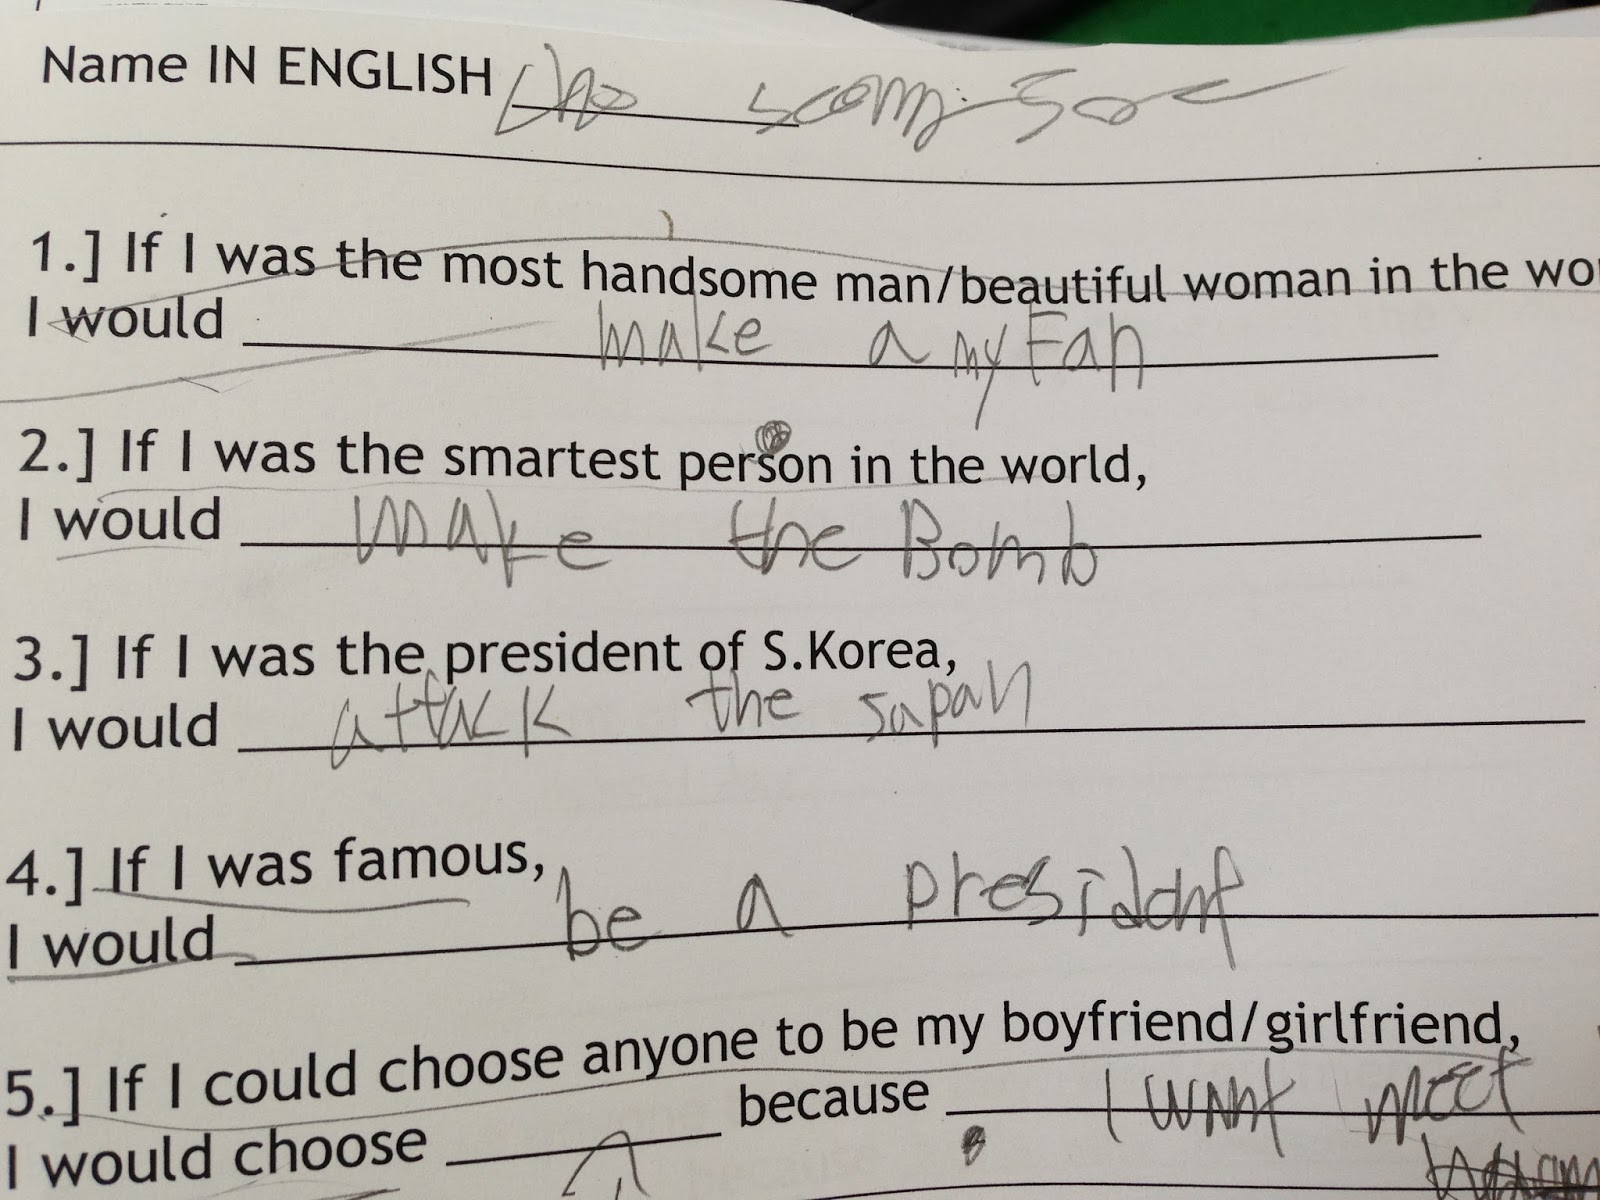 Name IN ENGLISH Cho
1.] If I was the most handsome man/beautiful woman in the wo
I would make a my Fan
2.] If I was the smartest person in the world,
I would make the Bomb
3.] If I was the president of S.Korea,
I would attack the Japan
4.] If I was famous,
I would be a president
5.] If I could choose anyone to be my boyfriend/girlfriend,
I would choose because I want meet